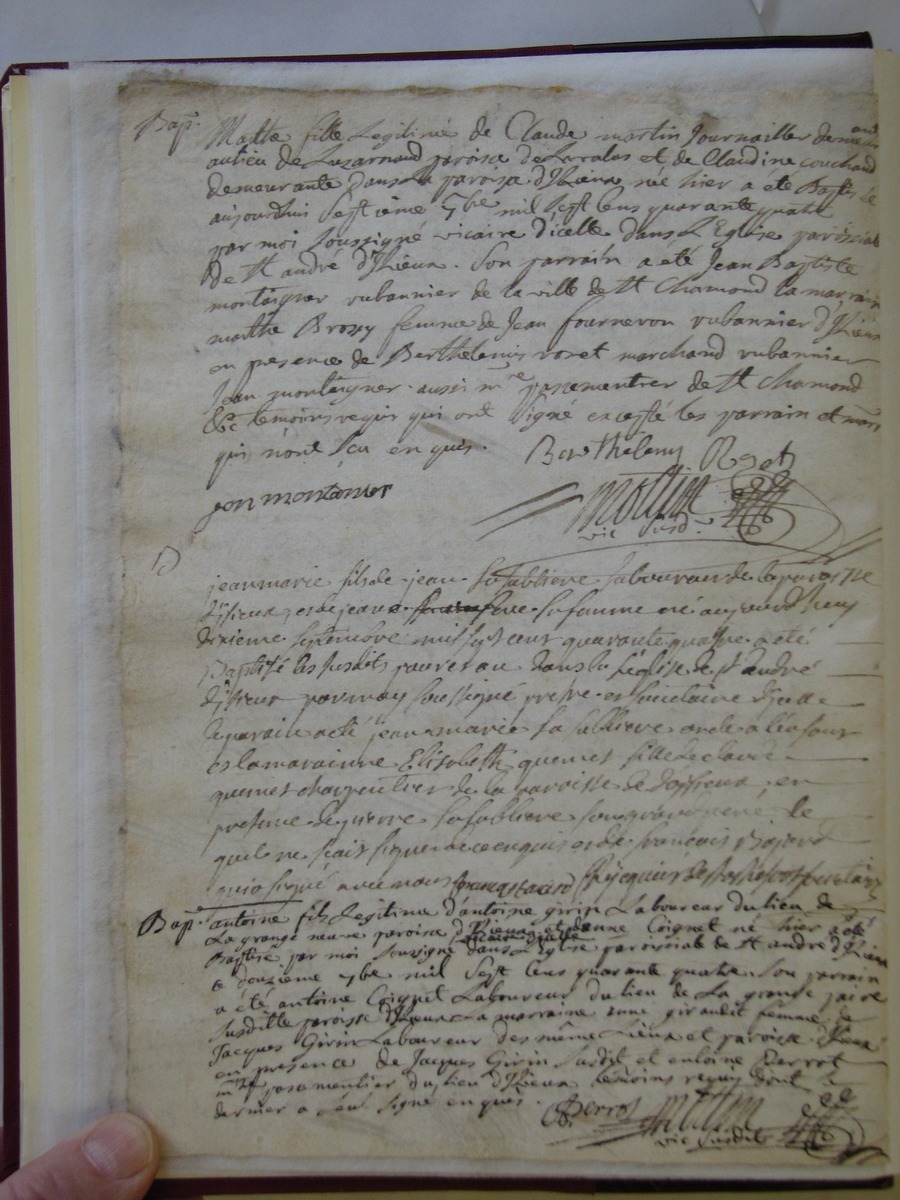 Bap.
Mathe fille Legitime de Claude martin Journaillier demeurant
au lieu de Luzarnaud paroise de Laralas et de Claudine couchand
demeurante dans la paroise d'Izieux née hier a été Baptisée
aujourdhui Septième 7bre mil Sept Cens quarante quatre
par moi Soussigné vicaire d'icelle dans L'Eglise paroissial
de St andré d'Izieux. Son parrain a été Jean Baptiste
montaigner rubannier de la ville de St Chamond la marraine
mathe Brossy femme de Jean fourneron rubannier d'Izieux
en presence de Berthelemis roset marchand rubannier
Jean montaigner aussi me passementier de St Chamond
temoins requis qui ont Signé excepté les parrain et marr
qui n'ont Sçu enquis.
Barthelemy Roset
jean montanier
mottin
vic susd.
jean marie fils de jean la sabliere laboureur de la paroisse
d'isieux, et de jeane sa famme né aujourd'huy
dixieme septembre mil sept cent quarante quatre a été
Baptisé les susdits jour et an dans la l'église de st andré
d'isieux par moy soussigné prestre et
le parain a été jean marie la sabliere oncle a l'enfant
et la marainne Elisabeth quemet fille de claude
quemet charpentier de la paroisse de doisieux, en
presence de pierre la sabliere son grand père, le
quel ne scait signer de ce enquis et de françois Bajard
qui a signé avec nous
Bap.
antoine fils Legitime d'antoine girin Laboureur du lieu de
La grange neuve paroise d'Izieux et danne Coignet né hier a été
vicaire susdit
Baptisé par moi Soussigné dans L'Eglise paroissiale de St andré d'Izieux
ce douzieme 7bre mil Sept Cens quarante quatre. Son parrain
a été antoine Coignet Laboureur du lieu de La grange
Susditte paroisse d'Izieux La marraine anne giraudit femme de
Jacques Girin Laboureur des même Lieux et paroise d'Izieux
en presence de Jacques Girin Susdit et antoine Perrot
me passementier du lieu d'Izieux temoins requis dont le
dernier a Seul Signé enquis.
Perrot
mottin
vic susdit